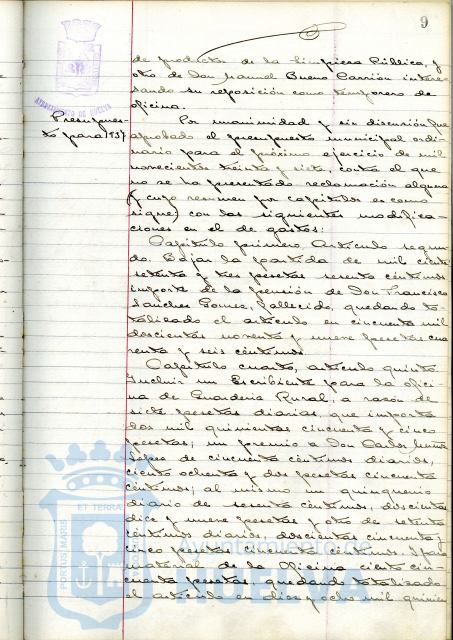 9
de productos de la Limpieza Pública, y
otro de Don Manuel Bueno Carrión intere-
sando su reposición como temporero de
oficina.
Presupues-
to para 1937
Por unanimidad y sin discusión fue
aprobado el presupuesto municipal ordi-
nario para el próximo ejercicio de mil
novecientos treinta y siete, contra el que
no se ha presentado reclamación alguna
(y cuyo resumen por capítulos es como
sigue) con las siguientes modifica-
ciones en el de gastos:
Capítulo primero, Artículo segun-
do. Bajar la partida de mil ciento
setenta y tres pesetas sesenta céntimos
importe de la pensión de Don Francisco
Sanchez Gomez, fallecido, quedando to-
talizado el artículo en cincuenta mil
doscientas noventa y nueve pesetas cua-
renta y seis céntimos.
Capítulo cuarto, artículo quinto
Incluir un Escribiente para la ofici-
na de Guardería Rural, a razón de
siete pesetas diarias, que importa
dos mil quinientas cincuenta y cinco
pesetas; un premio a Don Carlos
Lopez de cincuenta céntimos diarios,
ciento ochenta y dos pesetas cincuenta
céntimos; al mismo un quinquenio
diario de sesenta céntimos, doscientas
diez y nueve pesetas y otro de setenta
céntimos diarios, doscientas cincuenta y
cinco pesetas cincuenta céntimos, y para
material de la Oficina ciento cin-
cuenta pesetas, quedando totalizado
el artículo en diez y ocho mil quinien-
AYUNTAMIENTO DE HUELVA
PORTUS MARIS
ET TERRAE
Ayuntamiento de
HUELVA